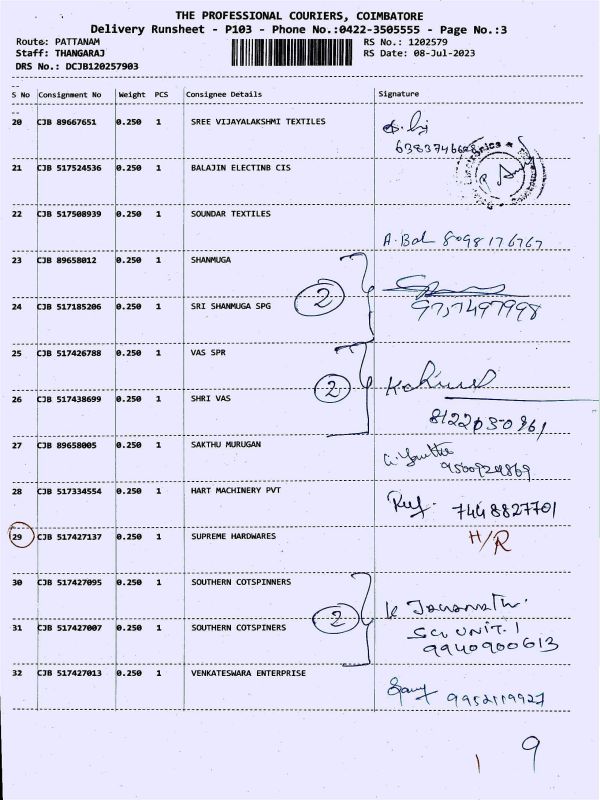 THE PROFESSIONAL COURIERS, COIMBATORE
Delivery Runsheet - P103 - Phone No.:0422-3505555 - Page No.:3
Route: PATTANAM RS No.: 1202579
Staff: THANGARAJ RS Date: 08-Jul-2023
DRS No.: DCJB120257903
S No Consignment No Weight PCS Consignee Details Signature
20 CJB 89667651 0.250 1 SREE VIJAYALAKSHMI TEXTILES
21 CJB 517524536 0.250 1 BALAJIN ELECTINB CIS
22 CJB 517508939 0.250 1 SOUNDAR TEXTILES
A. Bal 8098176767
23 CJB 89658012 0.250 1 SHANMUGA
2
24 CJB 517185206 0.250 1 SRI SHANMUGA SPG
25 CJB 517426788 0.250 1 VAS SPR
2
26 CJB 517438699 0.250 1 SHRI VAS
27 CJB 89658005 0.250 1 SAKTHU MURUGAN
9500924869
28 CJB 517334554 0.250 1 HART MACHINERY PVT
7448827701
29 CJB 517427137 0.250 1 SUPREME HARDWARES H/R
30 CJB 517427095 0.250 1 SOUTHERN COTSPINNERS
2
31 CJB 517427007 0.250 1 SOUTHERN COTSPINERS
UNIT. 1
9940900613
32 CJB 517427013 0.250 1 VENKATESWARA ENTERPRISE
9952119927
1 9